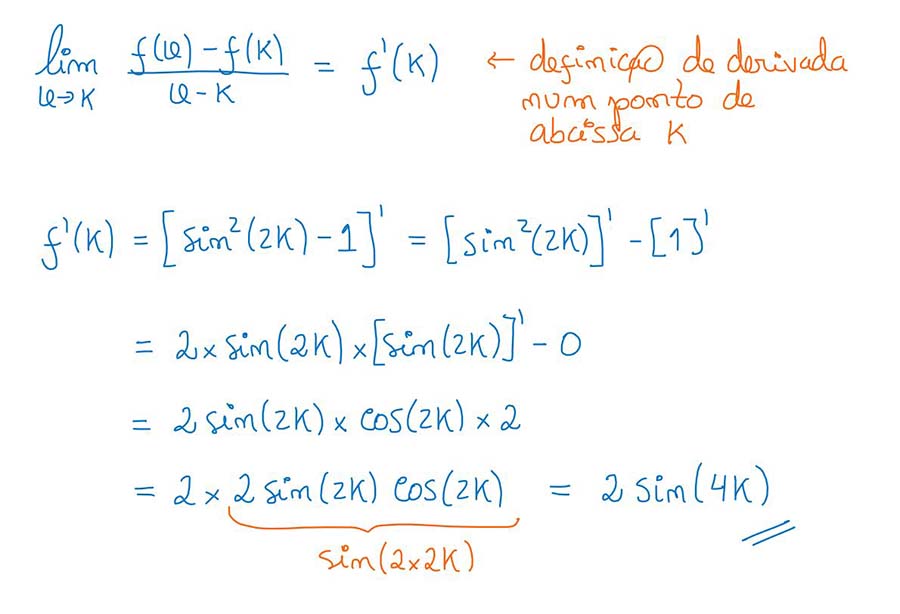 lim φ→K (f(φ) - f(K))/(φ - K) = f'(K) ← definição de derivada
num ponto de
abcissa K
f'(K) = [sin²(2K) - 1]' = [sin²(2K)]' - [1]'
= 2 × sin(2K) × [sin(2K)]' - 0
= 2 sin(2K) × cos(2K) × 2
= 2 × 2 sin(2K) cos(2K) = 2 sin(4K)
sin(2×2K)